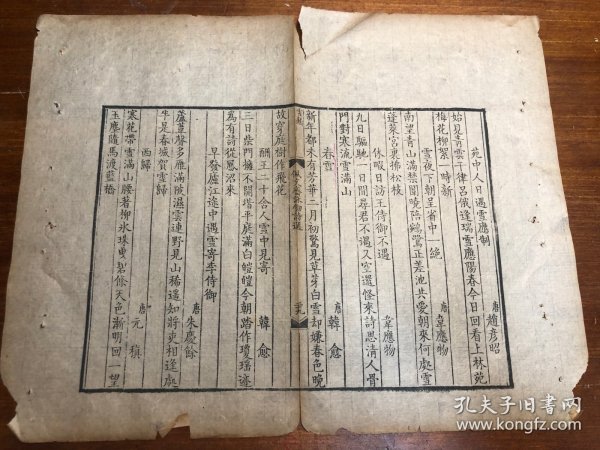 苑中人日遇雪應制
唐 趙彦昭
始見青雲干律呂俄逢瑞雪應陽春今日回看上林苑
梅花柳絮一時新
雪夜下朝呈省中一絶
唐 韋應物
南望青山滿禁闈曉陪鴛鷺正差池共愛朝來何處雪
蓬萊宮裏拂松枝
休暇日訪王侍御不遇
韋應物
九日驅馳一日閒尋君不遇又空還怪來詩思清人骨
門對寒流雪滿山
春雪
唐 韓愈
新年都未有芳華二月初驚見草芽白雪却嫌春色晚
故穿庭樹作飛花
酬王二十舍人雪中見寄
韓愈
三日柴門擁不開堦平庭滿白皚皚今朝踏作瓊瑶迹
為有詩從鳳沼來
早發廬江途中遇雪寄李侍御
唐 朱慶餘
蘆葦聲多雁滿陂濕雲連野見山稀遥知將吏相逢處
半是春城賀雪歸
西歸
唐 元稹
寒花帶雪滿山腰著柳冰珠滿碧條天色漸明回一望
玉塵隨馬渡藍橋
孔夫子旧书网
www.kongfz.com